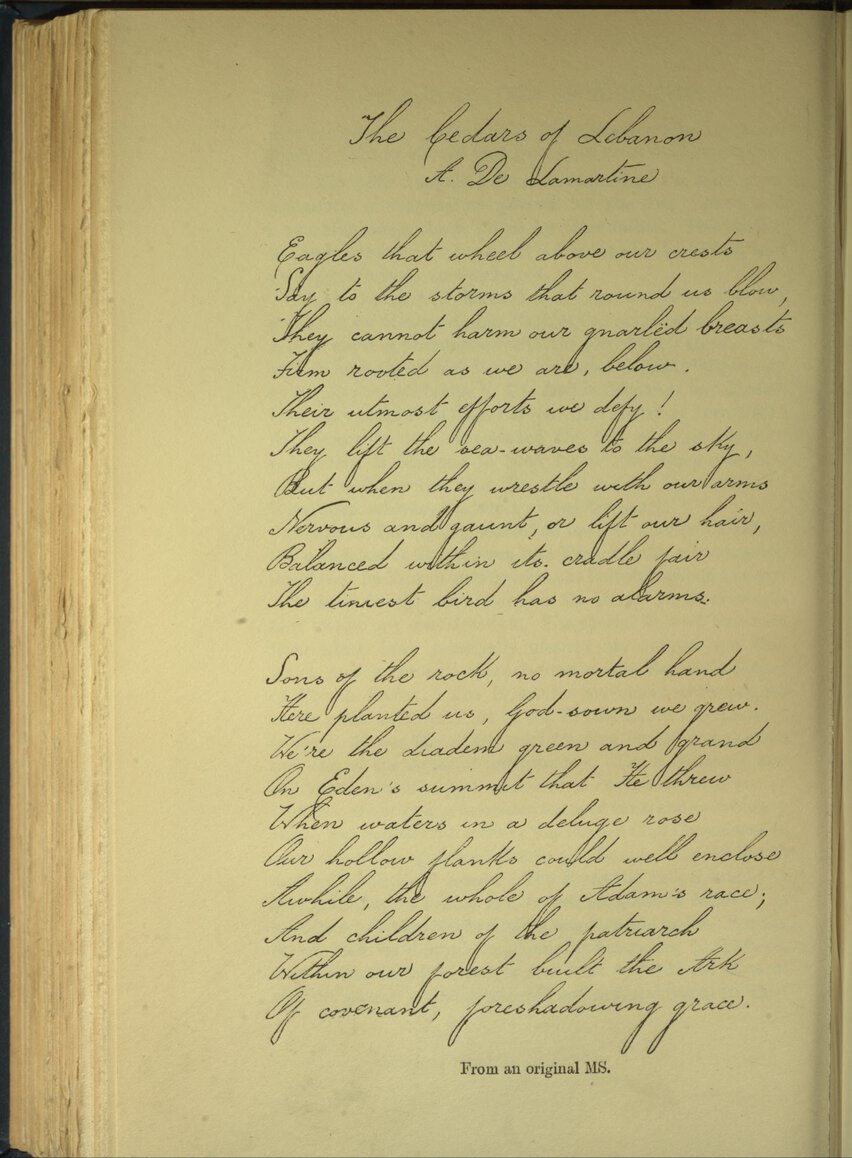 The Cedars of Lebanon
A. De Lamartine
Eagles that wheel above our crests
Say to the storms that round us blow,
They cannot harm our gnarlëd breasts
Firm rooted as we are, below.
Their utmost efforts we defy!
They lift the sea-waves to the sky,
But when they wrestle with our arms
Nervous and gaunt, or lift our hair,
Balanced within its cradle fair
The tiniest bird has no alarms.
Sons of the rock, no mortal hand
Here planted us, God-sown we grew.
We're the diadem green and grand
On Eden's summit that He threw
When waters in a deluge rose
Our hollow flanks could well enclose
Awhile, the whole of Adam's race;
And children of the patriarch
Within our forest built the Ark
Of covenant, foreshadowing grace.
From an original MS.